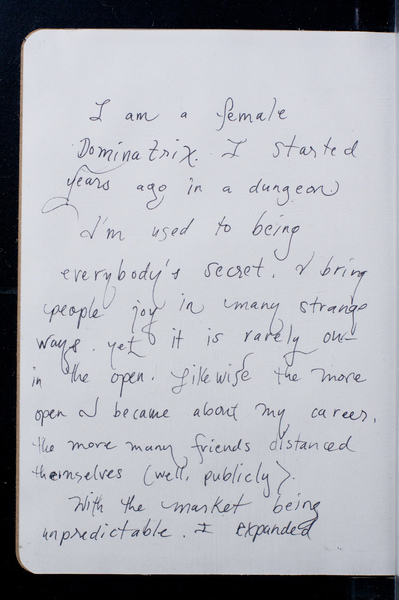 I am a female
Dominatrix. I started
years ago in a dungeon
I'm used to being
everybody's secret. I bring
people joy in many strange
ways. yet it is rarely out
in the open. Likewise the more
open I became about my career,
the more many friends distanced
themselves (well, publicly).
With the market being
unpredictable. I expanded